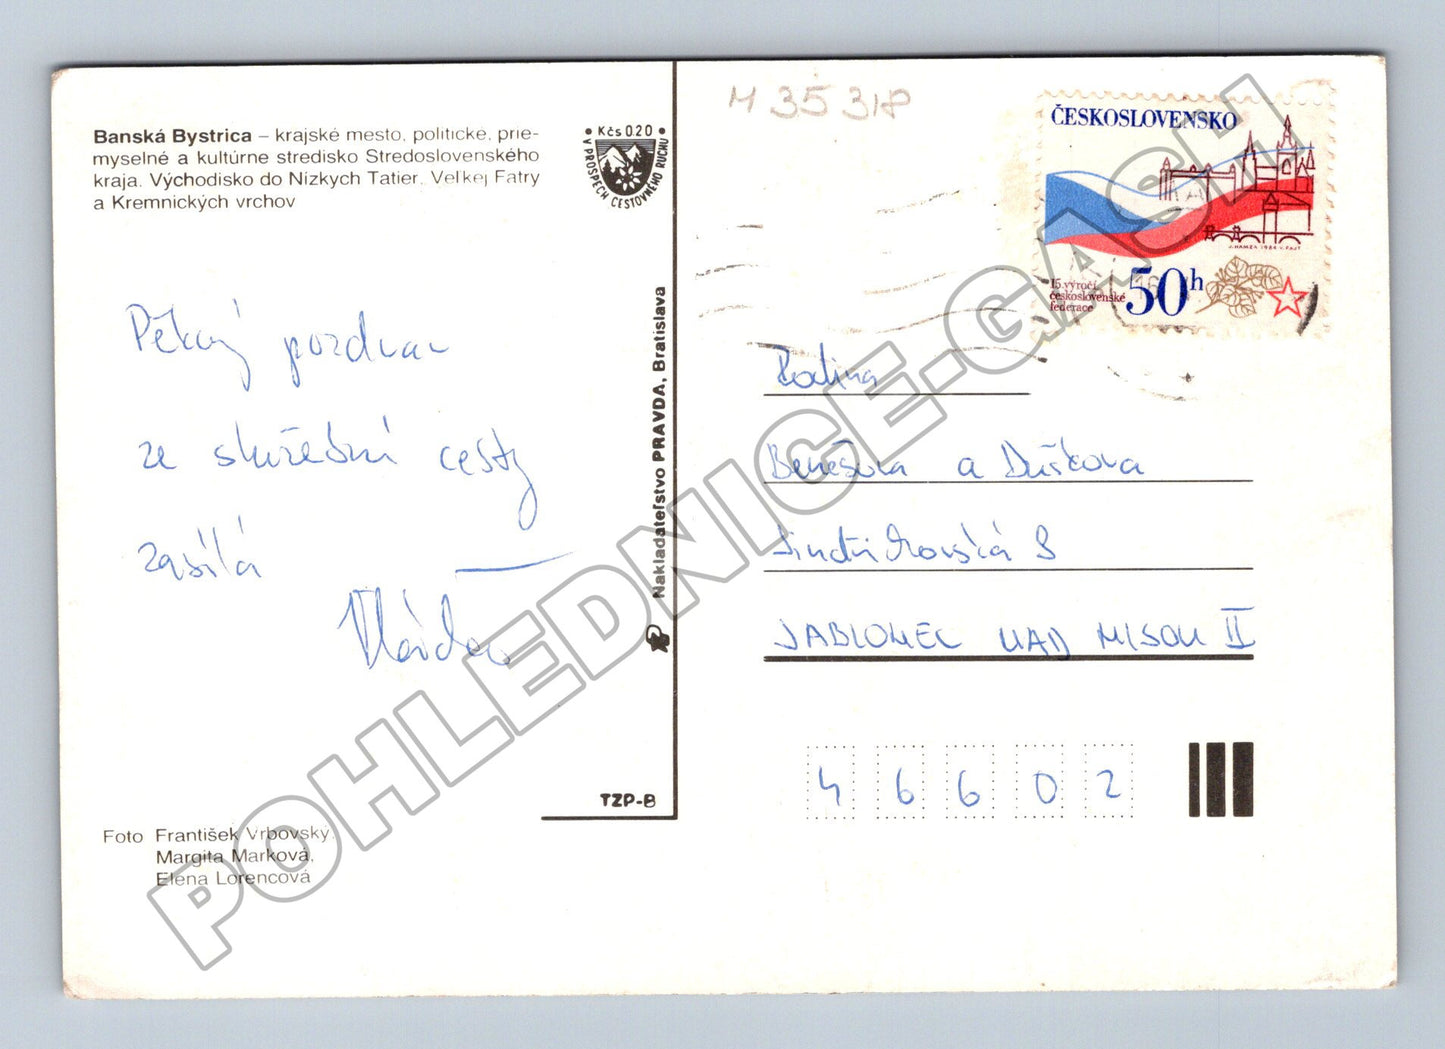 Banská Bystrica – krajské mesto, politické, prie-
myselné a kultúrne stredisko Stredoslovenského
kraja. Východisko do Nízkych Tatier, Veľkej Fatry
a Kremnických vrchov
• Kčs 0.20 •
V PROSPECH CESTOVNÉHO RUCHU
Pěkný pozdrav
ze služební cesty
zasílá
Vláďa
Nakladateľstvo PRAVDA, Bratislava
TZP-B
Foto František Vrbovský,
Margita Marková,
Elena Lorencová
M 35 318
ČESKOSLOVENSKO
J. HAMZA 1984 V. FAJT
15. výročí
československé
federace
50h
Rodina
Benešova a Dušková
Jindřichovská 8
JABLONEC NAD NISOU II
46602
POHLEDNICE-GASH